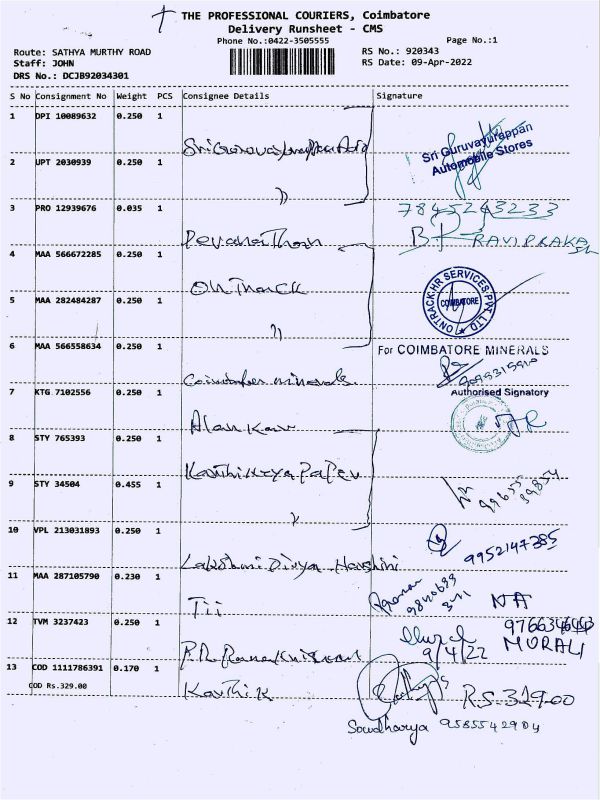 THE PROFESSIONAL COURIERS, Coimbatore
Delivery Runsheet - CMS
Phone No.:0422-3505555
Page No.:1
Route: SATHYA MURTHY ROAD
RS No.: 920343
Staff: JOHN
RS Date: 09-Apr-2022
DRS No.: DCJB92034301
S No Consignment No Weight PCS Consignee Details Signature
1 DPI 10089632 0.250 1
Sri Guruvayureppan
Automobile Stores
2 UPT 2030939 0.250 1
"
3 PRO 12939676 0.035 1
7845243233
B.P. RAVIPRAKASH
4 MAA 566672285 0.250 1
Ontrack
ONTRACK HR SERVICES PVT. LTD
COIMBATORE
5 MAA 282484287 0.250 1
"
6 MAA 566558634 0.250 1
For COIMBATORE MINERALS
Coimbatore minerals
Authorised Signatory
7 KTG 7102556 0.250 1
Alankar
8 STY 765393 0.250 1
Karthikeya Paper
9 STY 34504 0.455 1
99655
89854
10 VPL 213031893 0.250 1
9952147385
Lakshmi Divya Harshini
11 MAA 287105790 0.230 1
9840633
NA
Tii
12 TVM 3237423 0.250 1
MURALI
9/4/22
13 COD 1111786391 0.170 1
COD Rs.329.00
Karthik
RS 329.00
Soudharya 9585542904